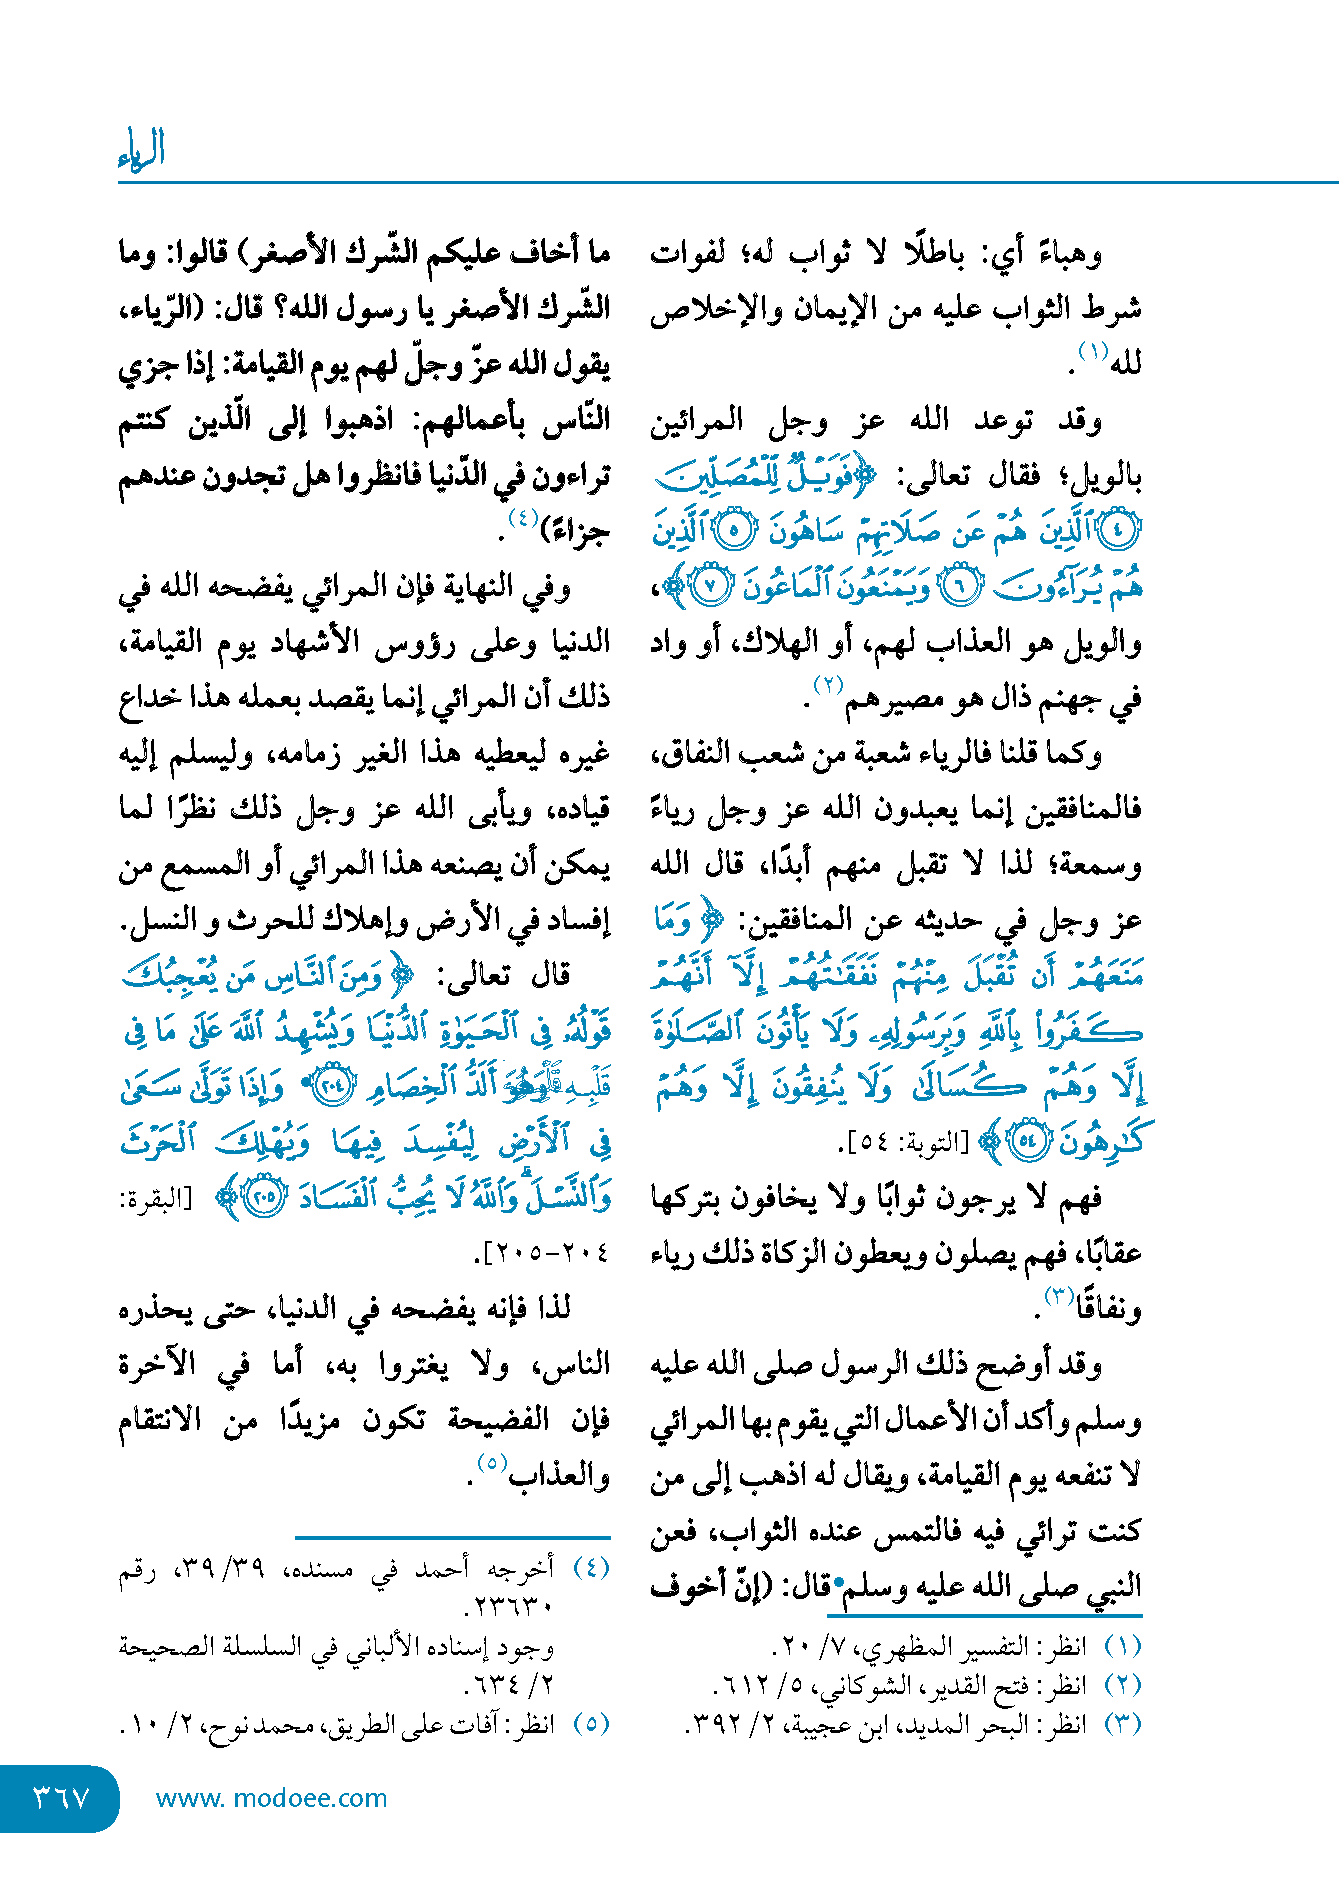 الرياء
وهباءً أي: باطلًا لا ثواب له؛ لفوات
شرط الثواب عليه من الإيمان والإخلاص
لله(١).
وقد توعد الله عز وجل المرائين
بالويل؛ فقال تعالى: ﴿فَوَيْلٌ لِّلْمُصَلِّينَ
٤ ٱلَّذِينَ هُمْ عَن صَلَاتِهِمْ سَاهُونَ ٥ ٱلَّذِينَ
هُمْ يُرَآءُونَ ٦ وَيَمْنَعُونَ ٱلْمَاعُونَ ٧﴾،
والويل هو العذاب لهم، أو الهلاك، أو واد
في جهنم لاذ هو مصيرهم(٢).
وكما قلنا فالرياء شعبة من شعب النفاق،
فالمنافقين إنما يعبدون الله عز وجل رياءً
وسمعة؛ لذا لا تقبل منهم أبدًا، قال الله
عز وجل في حديثه عن المنافقين: ﴿وَمَا
مَنَعَهُمْ أَن تُقْبَلَ مِنْهُمْ نَفَقَٰتُهُمْ إِلَّآ أَنَّهُمْ
كَفَرُوا۟ بِٱللَّهِ وَبِرَسُولِهِۦ وَلَا يَأْتُونَ ٱلصَّلَوٰةَ
إِلَّا وَهُمْ كُسَالَىٰ وَلَا يُنفِقُونَ إِلَّا وَهُمْ
كَٰرِهُونَ ٥٤﴾ [التوبة: ٥٤].
فهم لا يرجون ثوابًا ولا يخافون بتركها
عقابًا، فهم يصلون ويعطون الزكاة ذلك رياء
ونفاقًا(٣).
وقد أوضح ذلك الرسول صلى الله عليه
وسلم وأكد أن الأعمال التي يقوم بها المرائي
لا تنفعه يوم القيامة، ويقال له اذهب إلى من
كنت ترائي فيه فالتمس عنده الثواب، فعن
النبي صلى الله عليه وسلم•قال: (إنّ أخوف
(١) انظر: التفسير المظهري، ٧/ ٢٠.
(٢) انظر: فتح القدير، الشوكاني، ٥/ ٦١٢.
(٣) انظر: البحر المديد، ابن عجيبة، ٢/ ٣٩٢.
ما أخاف عليكم الشّرك الأصغر) قالوا: وما
الشّرك الأصغر يا رسول الله؟ قال: (الرّياء،
يقول الله عزّ وجلّ لهم يوم القيامة: إذا جزي
النّاس بأعمالهم: اذهبوا إلى الّذين كنتم
تراءون في الدّنيا فانظروا هل تجدون عندهم
جزاءً)(٤).
وفي النهاية فإن المرائي يفضحه الله في
الدنيا وعلى رؤوس الأشهاد يوم القيامة،
ذلك أن المرائي إنما يقصد بعمله هذا خداع
غيره ليعطيه هذا الغير زمامه، وليسلم إليه
قياده، ويأبى الله عز وجل ذلك نظرًا لما
يمكن أن يصنعه هذا المرائي أو المسمع من
إفساد في الأرض وإهلاك للحرث و النسل.
قال تعالى: ﴿وَمِنَ ٱلنَّاسِ مَن يُعْجِبُكَ
قَوْلُهُۥ فِى ٱلْحَيَوٰةِ ٱلدُّنْيَا وَيُشْهِدُ ٱللَّهَ عَلَىٰ مَا فِى
قَلْبِهِۦ وَهُوَ أَلَدُّ ٱلْخِصَامِ ٢٠٤ •وَإِذَا تَوَلَّىٰ سَعَىٰ
فِى ٱلْأَرْضِ لِيُفْسِدَ فِيهَا وَيُهْلِكَ ٱلْحَرْثَ
وَٱلنَّسْلَ ۗ وَٱللَّهُ لَا يُحِبُّ ٱلْفَسَادَ ٢٠٥﴾ [البقرة:
٢٠٤-٢٠٥].
لذا فإنه يفضحه في الدنيا، حتى يحذره
الناس، ولا يغتروا به، أما في الآخرة
فإن الفضيحة تكون مزيدًا من الانتقام
والعذاب(٥).
(٤) أخرجه أحمد في مسنده، ٣٩/ ٣٩، رقم
٢٣٦٣٠.
وجود إسناده الألباني في السلسلة الصحيحة
٢/ ٦٣٤.
(٥) انظر: آفات على الطريق، محمد نوح، ٢/ ١٠.
www. modoee.com
٣٦٧